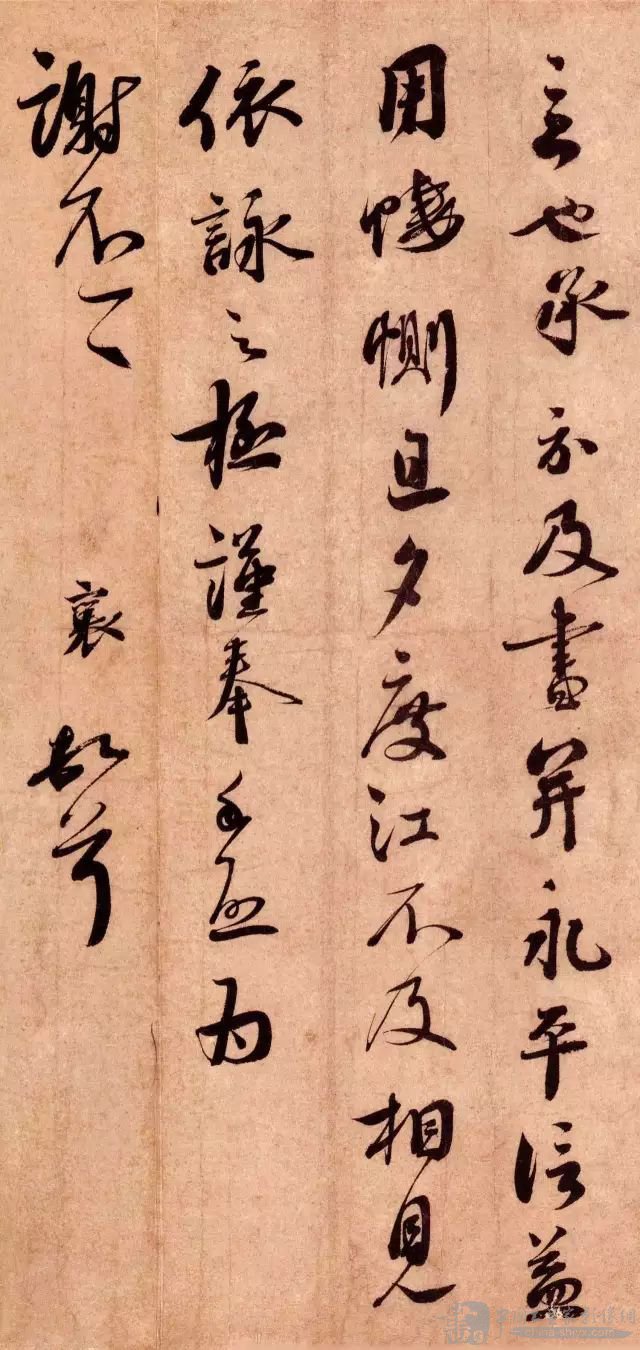 言也承示及書并永平信益
用悽惻旦夕度江不及相見
依詠之極謹奉手啓為
謝不一一 襄 頓首